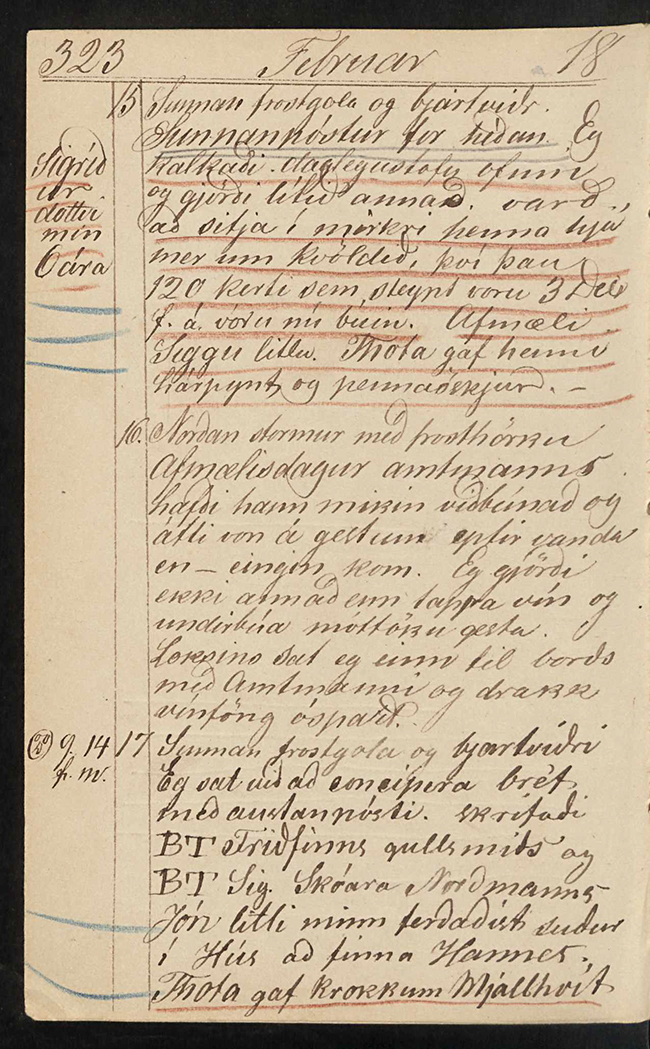 323 Februar 18
15 Sunnan frostgola og bjartviðr.
Sunnanpóstur fór héðan. Eg
kalkaði daglegustofu ofninn
Sigríð og gjörði lítið annað. varð
ur að sitja í mirkri henna hjá
dóttir mer um kvöldið, því þau
mín 120 kerti sem steypt voru 3 Des
6 ára f. á. voru nú búin. Afmæli
Siggu litlu. Thóta gaf henni
hárpynt og pennaöskjur. –
16. Norðan stormur með frosthörku
Afmælisdagur amtmanns
hafði hann mikin viðbúnað og
átti von á gestum eptir vanda
en – eingin kom. Eg gjörði
ekki annað enn tappa vín og
undirbúa móttöku gesta.
Loksins sat eg einn til borðs
með Amtmanni og drakk
vínföng óspart.
9. 14 17 Sunnan frostgola og bjartviðri
f. m. Eg sat við að concipera bréf
með austanpósti. skrifaði
BT Friðfinns gullsmiðs og
BT Sig. Skóara Norðmanns
Jón litli minn ferðaðist suður
í Hús að finna Hannes.
Thóta gaf krokkum Mjallhvít